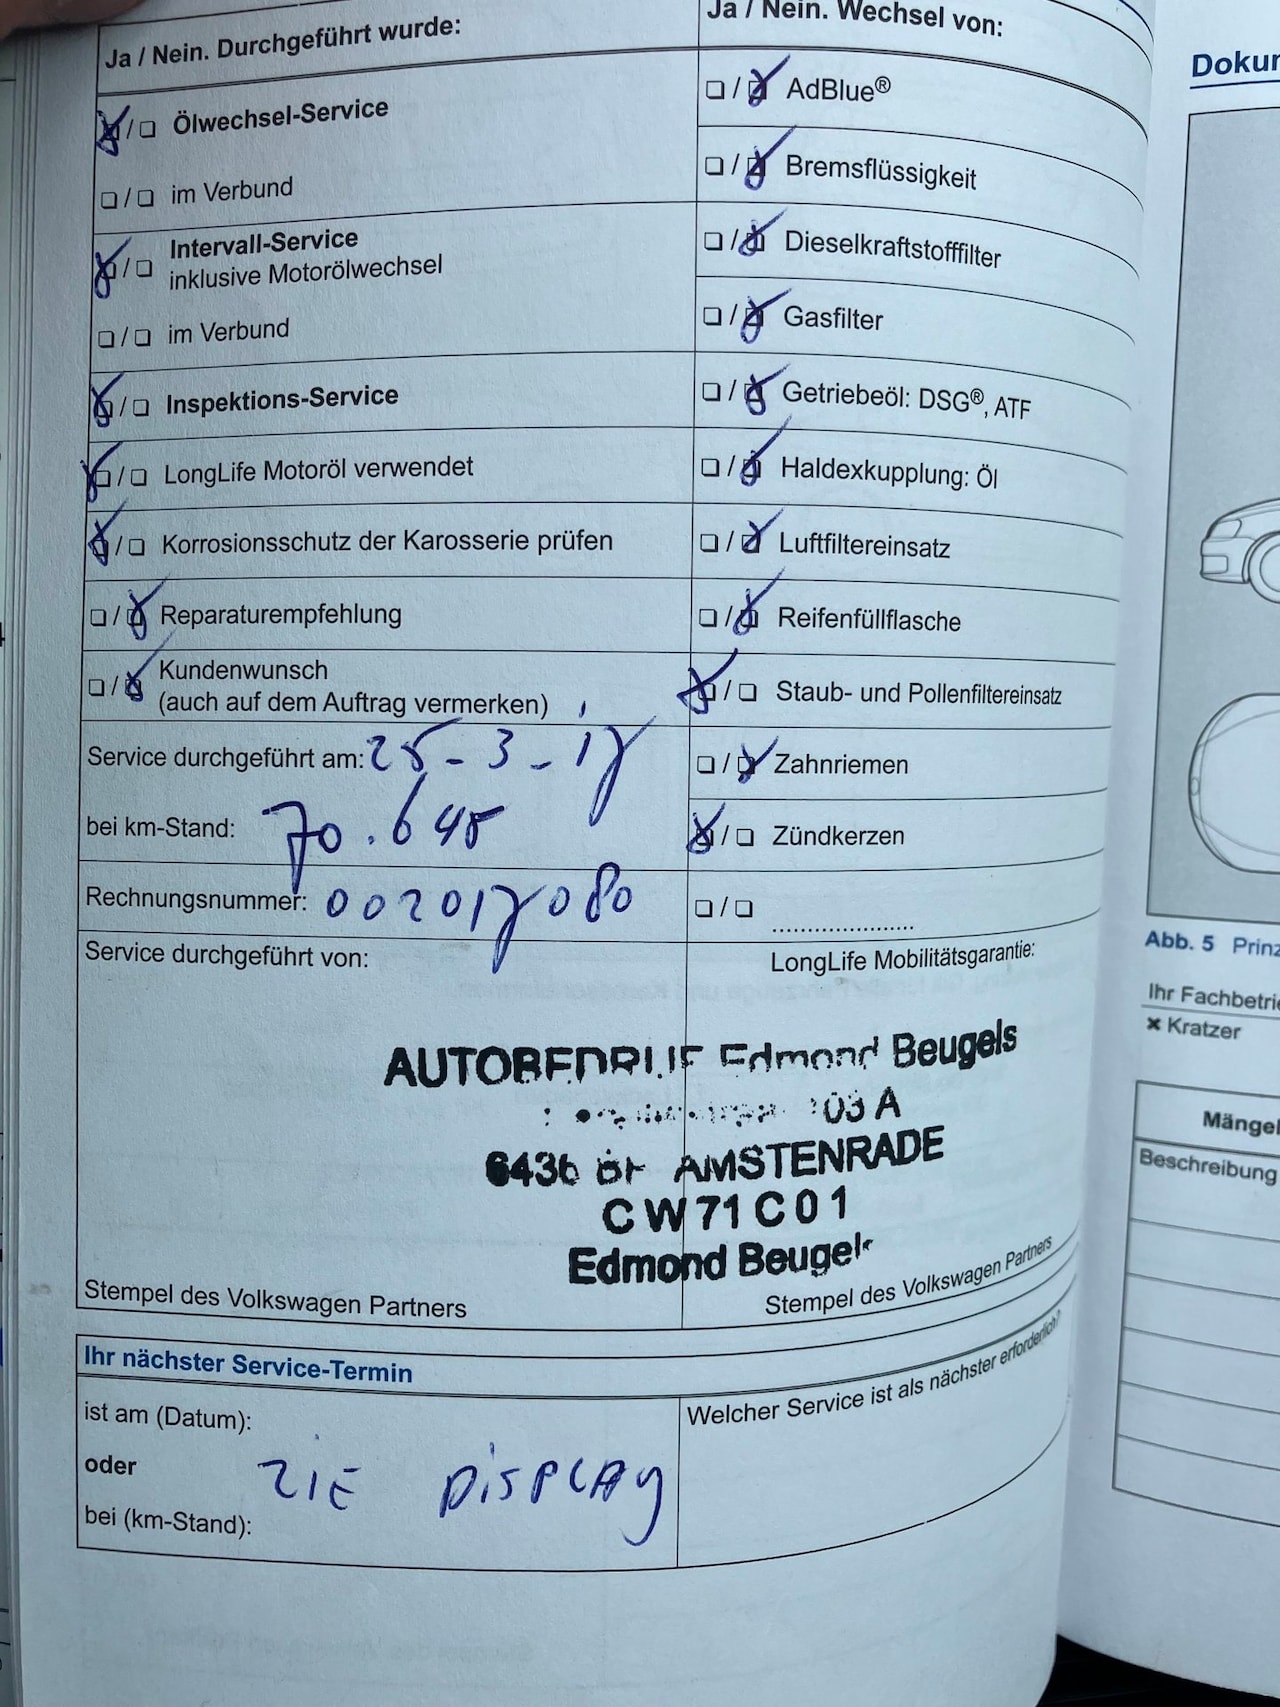 Ja / Nein. Durchgeführt wurde:
☒ / ☐ Ölwechsel-Service
☐ / ☐ im Verbund
☒ / ☐ Intervall-Service
inklusive Motorölwechsel
☐ / ☐ im Verbund
☒ / ☐ Inspektions-Service
☒ / ☐ LongLife Motoröl verwendet
☒ / ☐ Korrosionsschutz der Karosserie prüfen
☐ / ☒ Reparaturempfehlung
☐ / ☒ Kundenwunsch
(auch auf dem Auftrag vermerken)
Service durchgeführt am: 25-3-17
bei km-Stand: 70.645
Rechnungsnummer: 002017080
Service durchgeführt von:
Ja / Nein. Wechsel von:
☐ / ☒ AdBlue®
☐ / ☒ Bremsflüssigkeit
☐ / ☒ Dieselkraftstofffilter
☐ / ☒ Gasfilter
☐ / ☒ Getriebeöl: DSG®, ATF
☐ / ☒ Haldexkupplung: Öl
☐ / ☒ Luftfiltereinsatz
☐ / ☒ Reifenfüllflasche
☒ / ☐ Staub- und Pollenfiltereinsatz
☐ / ☒ Zahnriemen
☒ / ☐ Zündkerzen
☐ / ☐ ......................
LongLife Mobilitätsgarantie:
AUTOBEDRIJF Edmond Beugels
03 A
6436 AMSTENRADE
CW71C01
Edmond Beugels
Stempel des Volkswagen Partners
Stempel des Volkswagen Partners
Ihr nächster Service-Termin
ist am (Datum):
oder
ZIE DISPLAY
bei (km-Stand):
Welcher Service ist als nächster erforderlich?
Abb. 5
Kratzer
Beschreibung